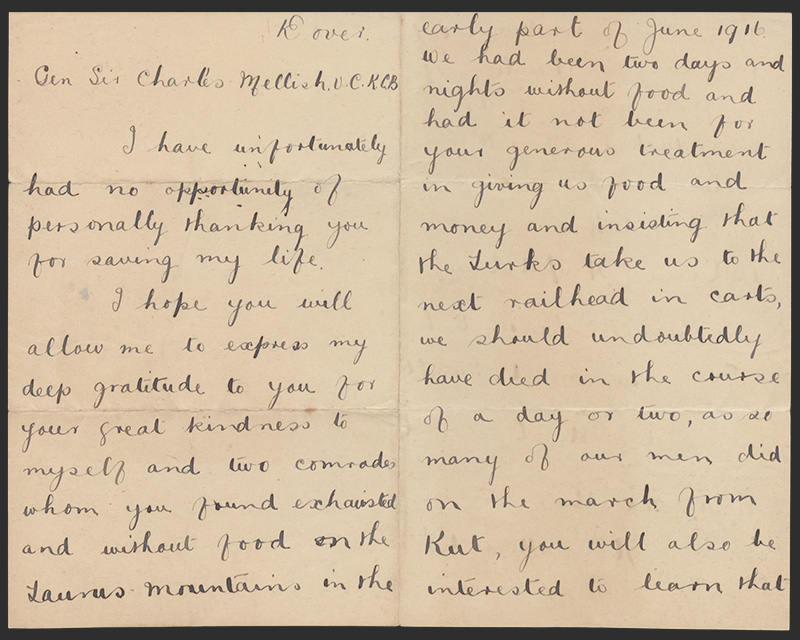 Dover.
Gen Sir Charles Mellish. V.C. K.C.B
I have unfortunately
had no opportunity of
personally thanking you
for saving my life.
I hope you will
allow me to express my
deep gratitude to you for
your great kindness to
myself and two comrades
whom you found exhausted
and without food on the
Taurus mountains in the
early part of June 1916.
we had been two days and
nights without food and
had it not been for
your generous treatment
in giving us food and
money and insisting that
the Turks take us to the
next railhead in carts,
we should undoubtedly
have died in the course
of a day or two, as so
many of our men did
on the march from
Kut, you will also be
interested to learn that